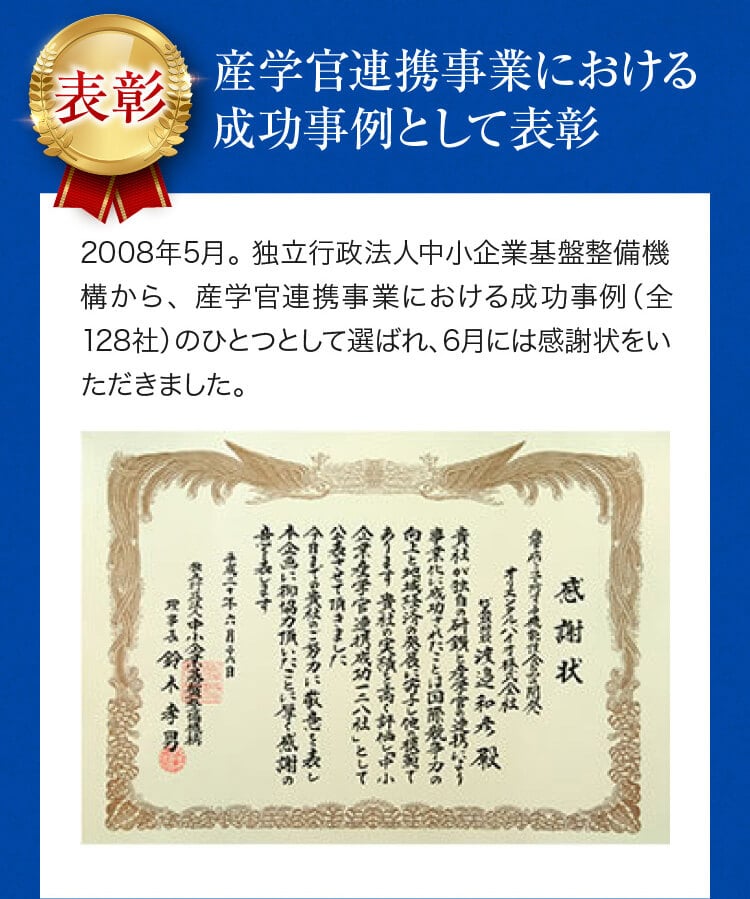 表彰
産学官連携事業における
成功事例として表彰
2008年5月。独立行政法人中小企業基盤整備機
構から、産学官連携事業における成功事例（全
128社）のひとつとして選ばれ、6月には感謝状をい
ただきました。
感謝状
オリエンタルバイオ株式会社
渡邉和彦 殿
貴社が独自の研鑽と産学官の連携により
事業化に成功されたことは国際競争力の
向上と地域経済の発展に寄与し他の模範で
あります 貴社の実績を高く評価し中小
企業産学官連携成功一二八社」として
公表させて頂きました
今日までの貴社のご努力に敬意を表し
本企画に御協力頂いたことに厚く感謝の
意を表します
平成二十年六月十八日
独立行政法人中小企業基盤整備機構
理事長 鈴木孝男